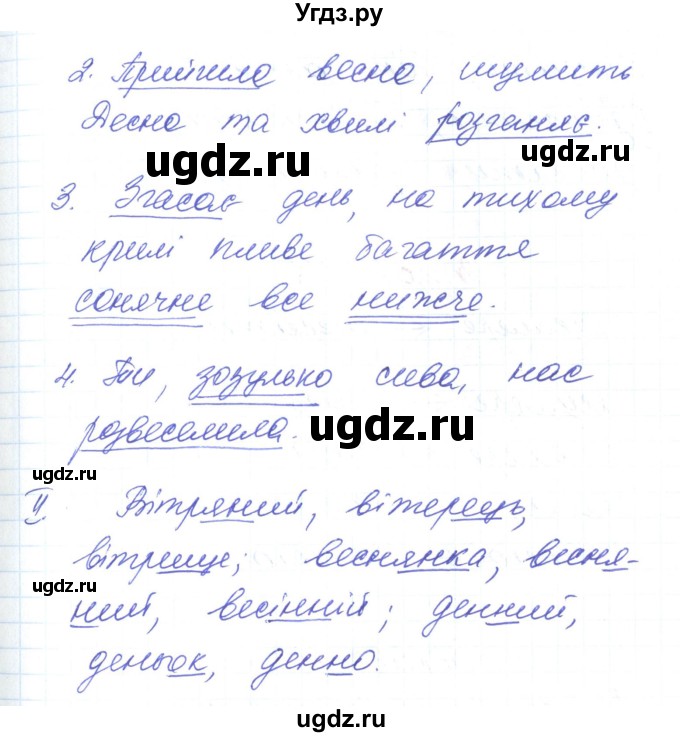 Угдз.ру
2. Прийшла весна, шумить
Десна та хвилі розганяє.
ugdz.ru
ugdz.ru
3. Згасає день, на тихому
крилі пливе багаття
сонячне все нижче.
4. Ти, зозулько сива, нас
розвеселила.
ugdz.ru
ugdz.ru
ІІ. Вітряний, вітерець,
вітрище; веснянка, весня-
ugdz.ru
ний, весінній; денний,
деньок, денно.
ugdz.ru